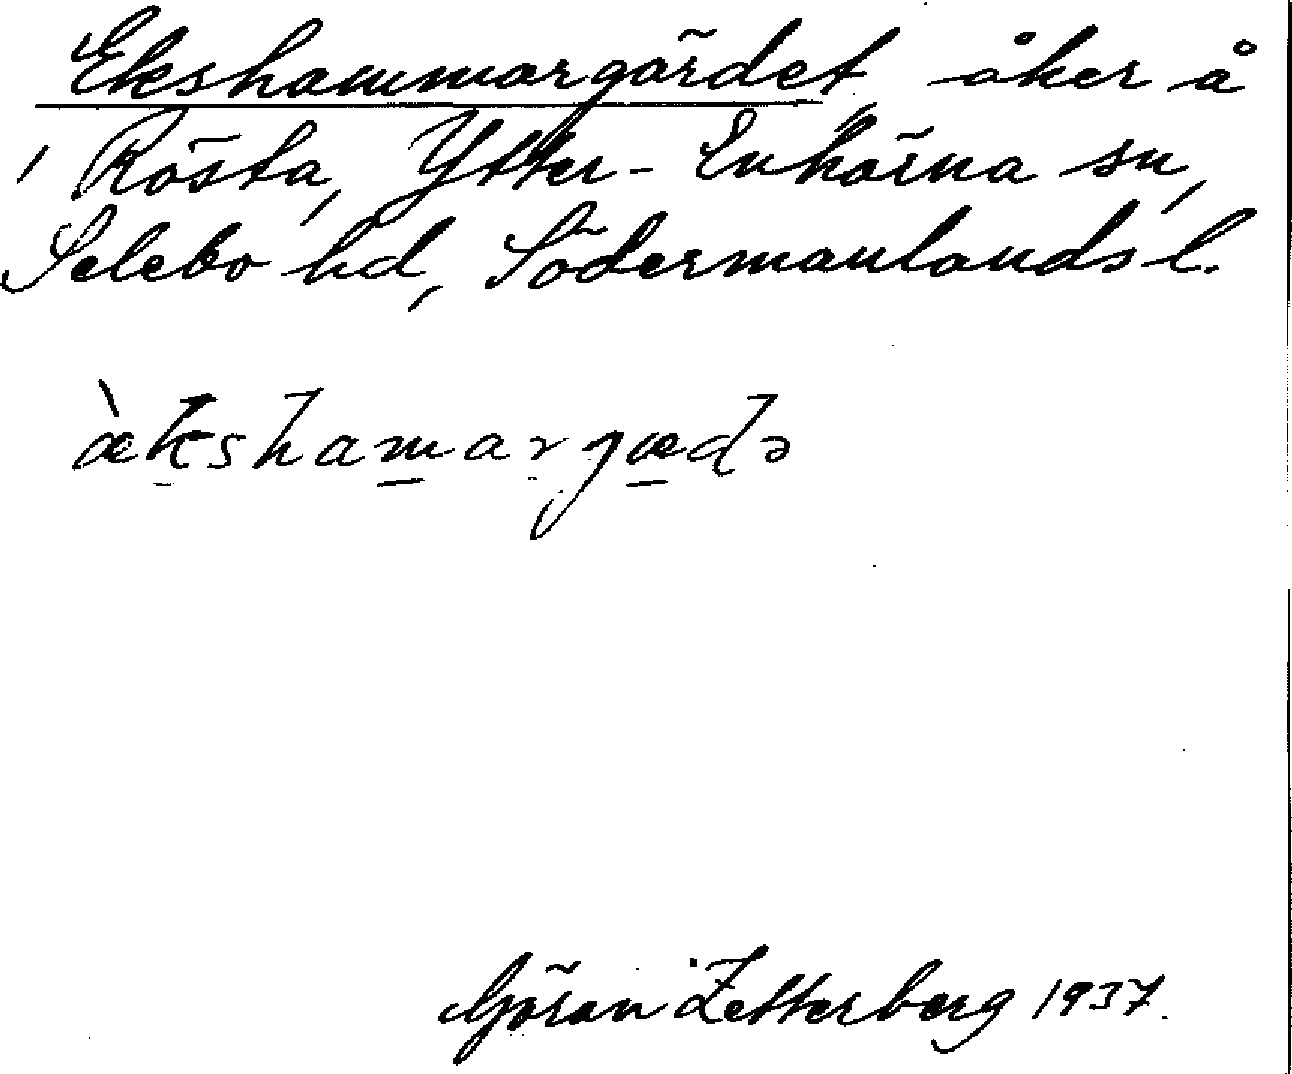 Ekshammargärdet, åker å
Rösta, Ytter-Enhörna sn,
Selebo hd, Södermanlands l.
æ̀kshamargædə
Göran Zetterberg 1937.